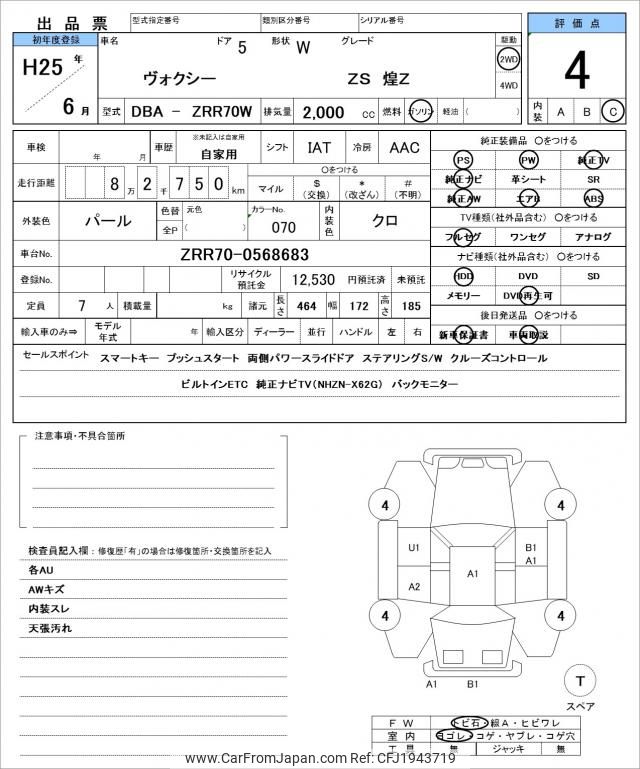 出品票 型式指定番号 類別区分番号 シリアル番号
初年度登録 車名 ドア 5 形状 W グレード 駆動 評価点
H25 年 ヴォクシー ZS 煌Z 2WD 4
6 月 4WD
型式 DBA － ZRR70W 排気量 2,000 cc 燃料 ガソリン 軽油 ( ) 内装 A B C
車検 年 月 車歴 ※未記入は自家用 自家用 シフト IAT 冷房 AAC 純正装備品 〇をつける
PS PW 純正TV
走行距離 8 万 2 千 7 5 0 km 〇をつける
マイル $ (交換) * (改ざん) # (不明)
純正ナビ 革シート SR
純正AW エアB ABS
外装色 パール 色替 元色 カラーNo. 内装色 クロ
全P ( ) 070
TV種類(社外品含む) 〇をつける
フルセグ ワンセグ アナログ
車台No. ZRR70-0568683 ナビ種類(社外品含む) 〇をつける
登録No. リサイクル預託金 12,530 円預託済 未預託 HDD DVD SD
定員 7 人 積載量 kg 諸元 長さ 464 幅 172 高さ 185 メモリー DVD再生可
後日発送品 〇をつける
輸入車のみ⇒ モデル年式 年 輸入区分 ディーラー 並行 ハンドル 左 右 新車保証書 車両取説
セールスポイント スマートキー プッシュスタート 両側パワースライドドア ステアリングS/W クルーズコントロール
ビルトインETC 純正ナビTV(NHZN-X62G) バックモニター
注意事項・不具合箇所
検査員記入欄：修復歴「有」の場合は修復箇所・交換箇所を記入
各AU
AWキズ
内装スレ
天張汚れ
4 4
U1 B1
A1
A1
A2
4 4
A1 B1
T
スペア
FW トビ石・線A・ヒビワレ
室内 ヨゴレ・コゲ・ヤブレ・コゲ穴
工具 無 ジャッキ 無
www.CarFromJapan.com Ref: CFJ1943719